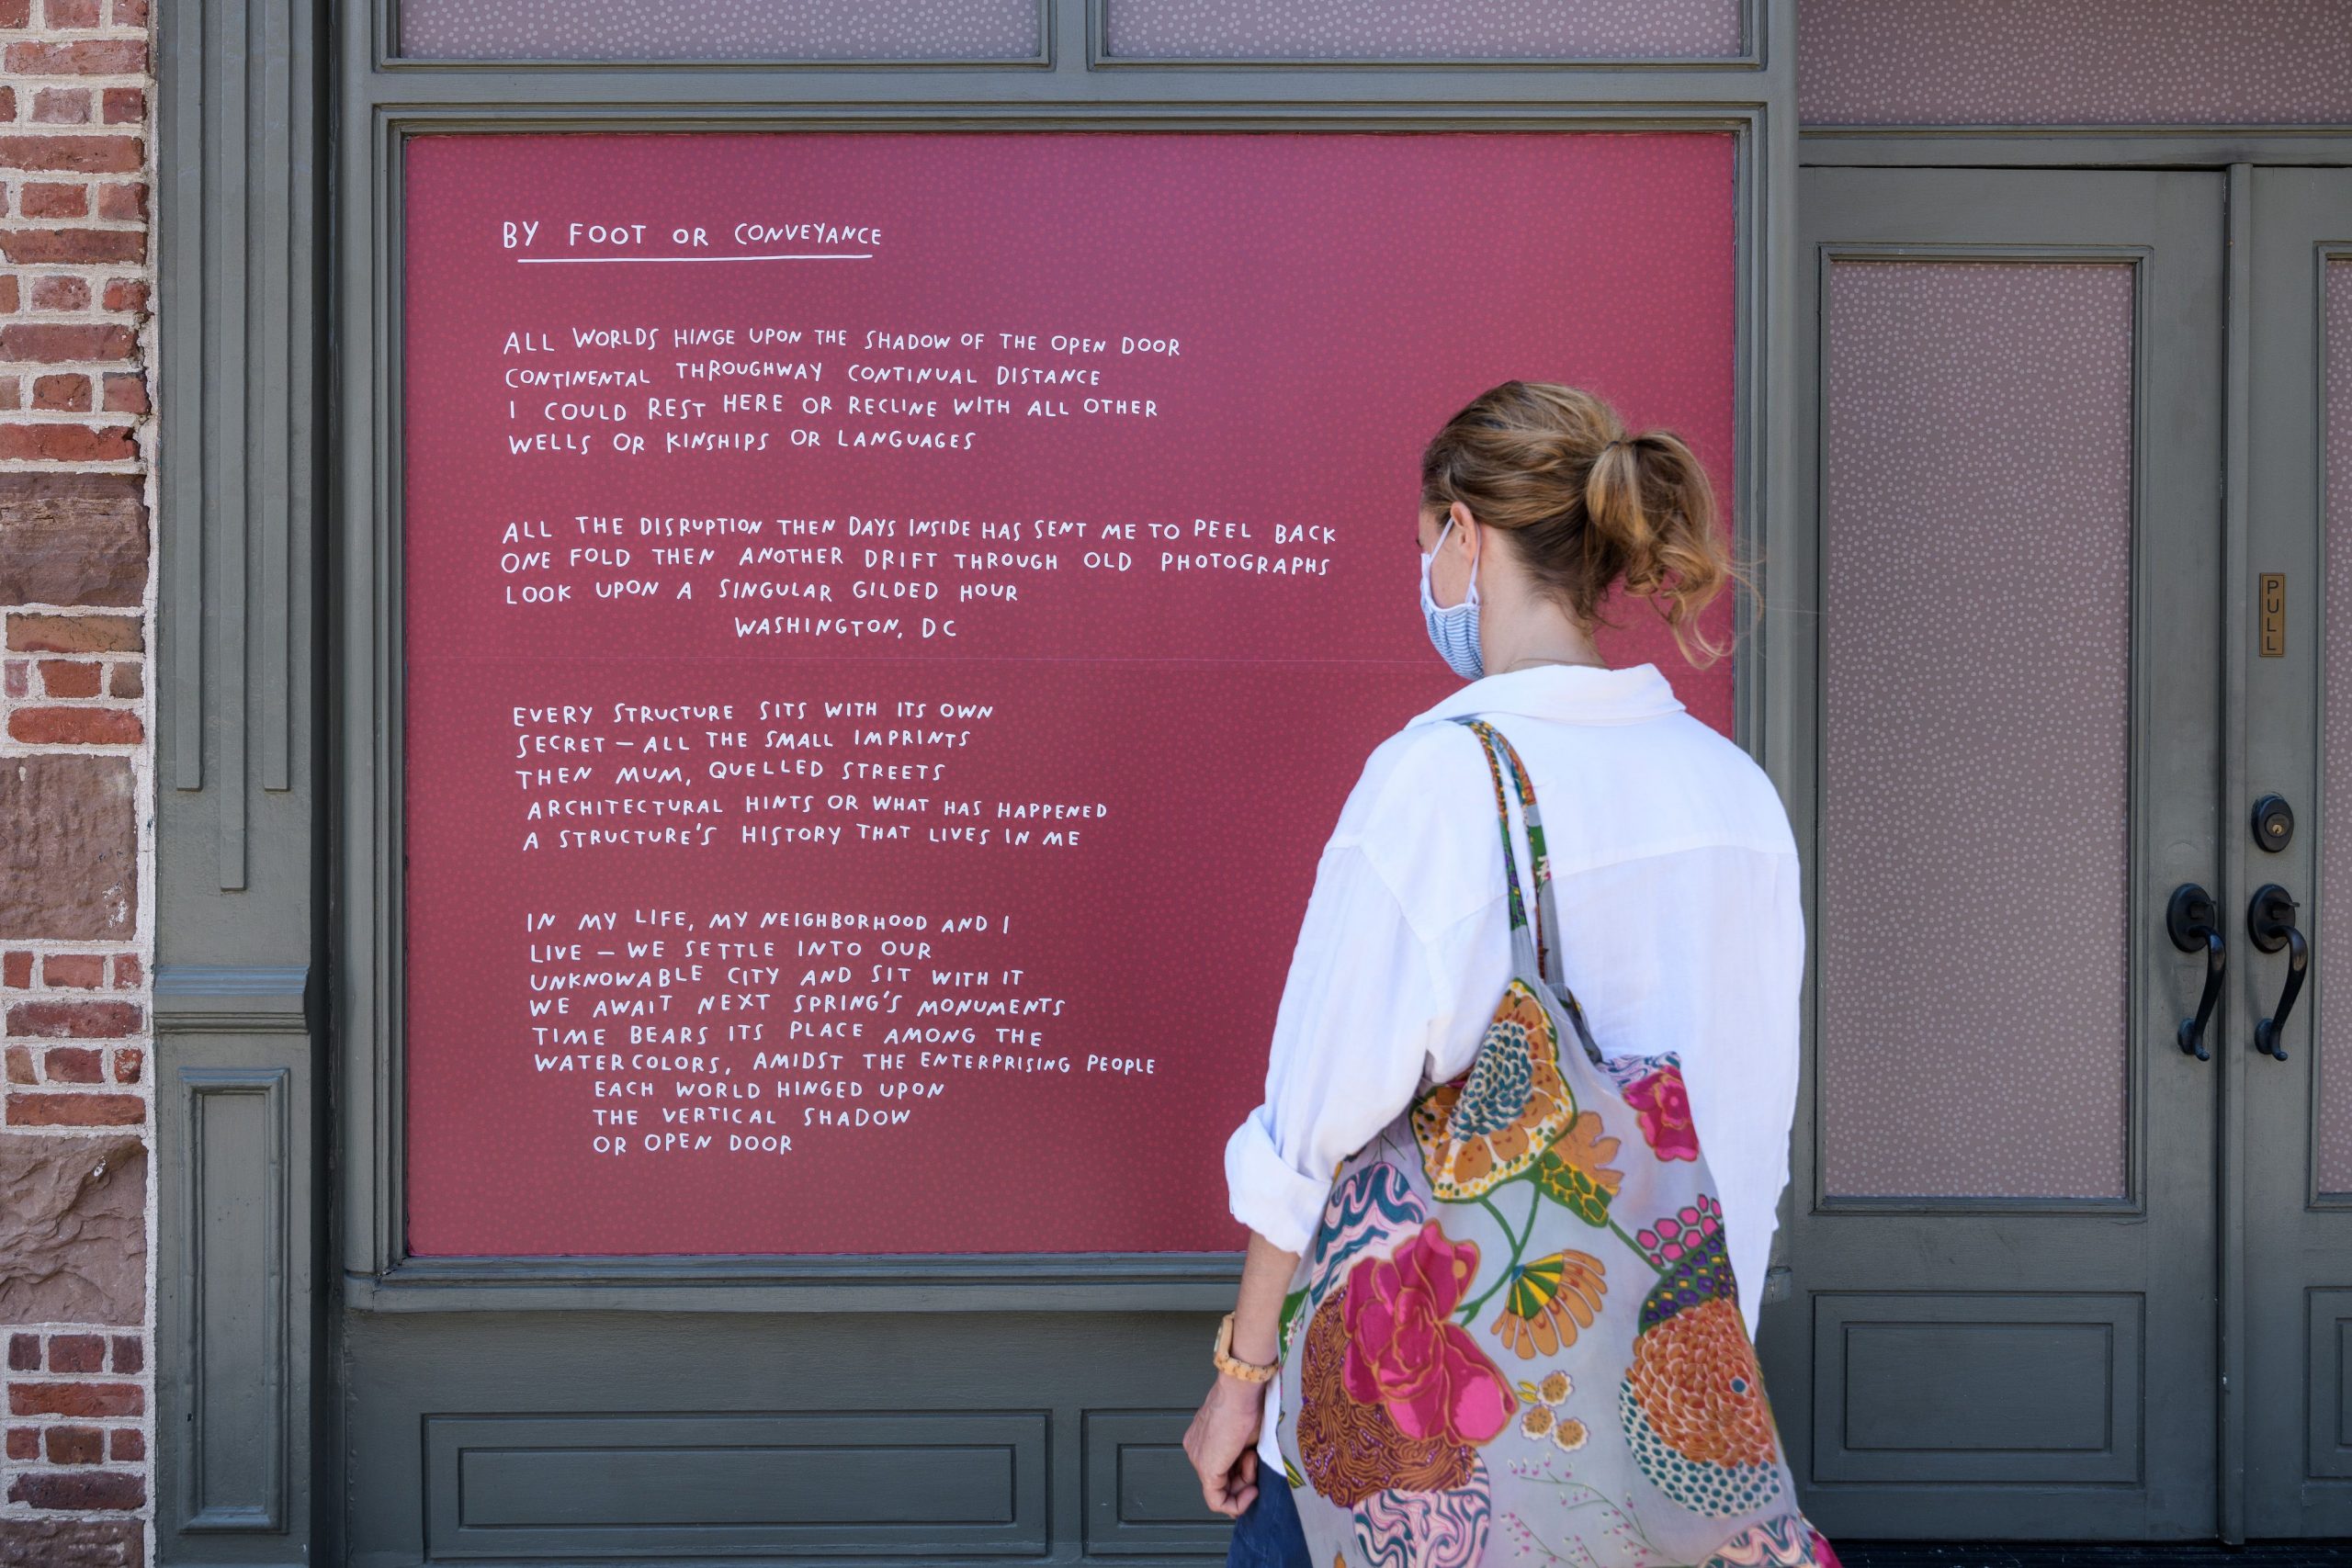 BY FOOT OR CONVEYANCE
ALL WORLDS HINGE UPON THE SHADOW OF THE OPEN DOOR
CONTINENTAL THROUGHWAY CONTINUAL DISTANCE
I COULD REST HERE OR RECLINE WITH ALL OTHER
WELLS OR KINSHIPS OR LANGUAGES
ALL THE DISRUPTION THEN DAYS INSIDE HAS SENT ME TO PEEL BACK
ONE FOLD THEN ANOTHER DRIFT THROUGH OLD PHOTOGRAPHS
LOOK UPON A SINGULAR GILDED HOUR
WASHINGTON, DC
EVERY STRUCTURE SITS WITH ITS OWN
SECRET — ALL THE SMALL IMPRINTS
THEN MUM, QUELLED STREETS
ARCHITECTURAL HINTS OR WHAT HAS HAPPENED
A STRUCTURE'S HISTORY THAT LIVES IN ME
IN MY LIFE, MY NEIGHBORHOOD AND I
LIVE — WE SETTLE INTO OUR
UNKNOWABLE CITY AND SIT WITH IT
WE AWAIT NEXT SPRING'S MONUMENTS
TIME BEARS ITS PLACE AMONG THE
WATERCOLORS, AMIDST THE ENTERPRISING PEOPLE
EACH WORLD HINGED UPON
THE VERTICAL SHADOW
OR OPEN DOOR
PULL